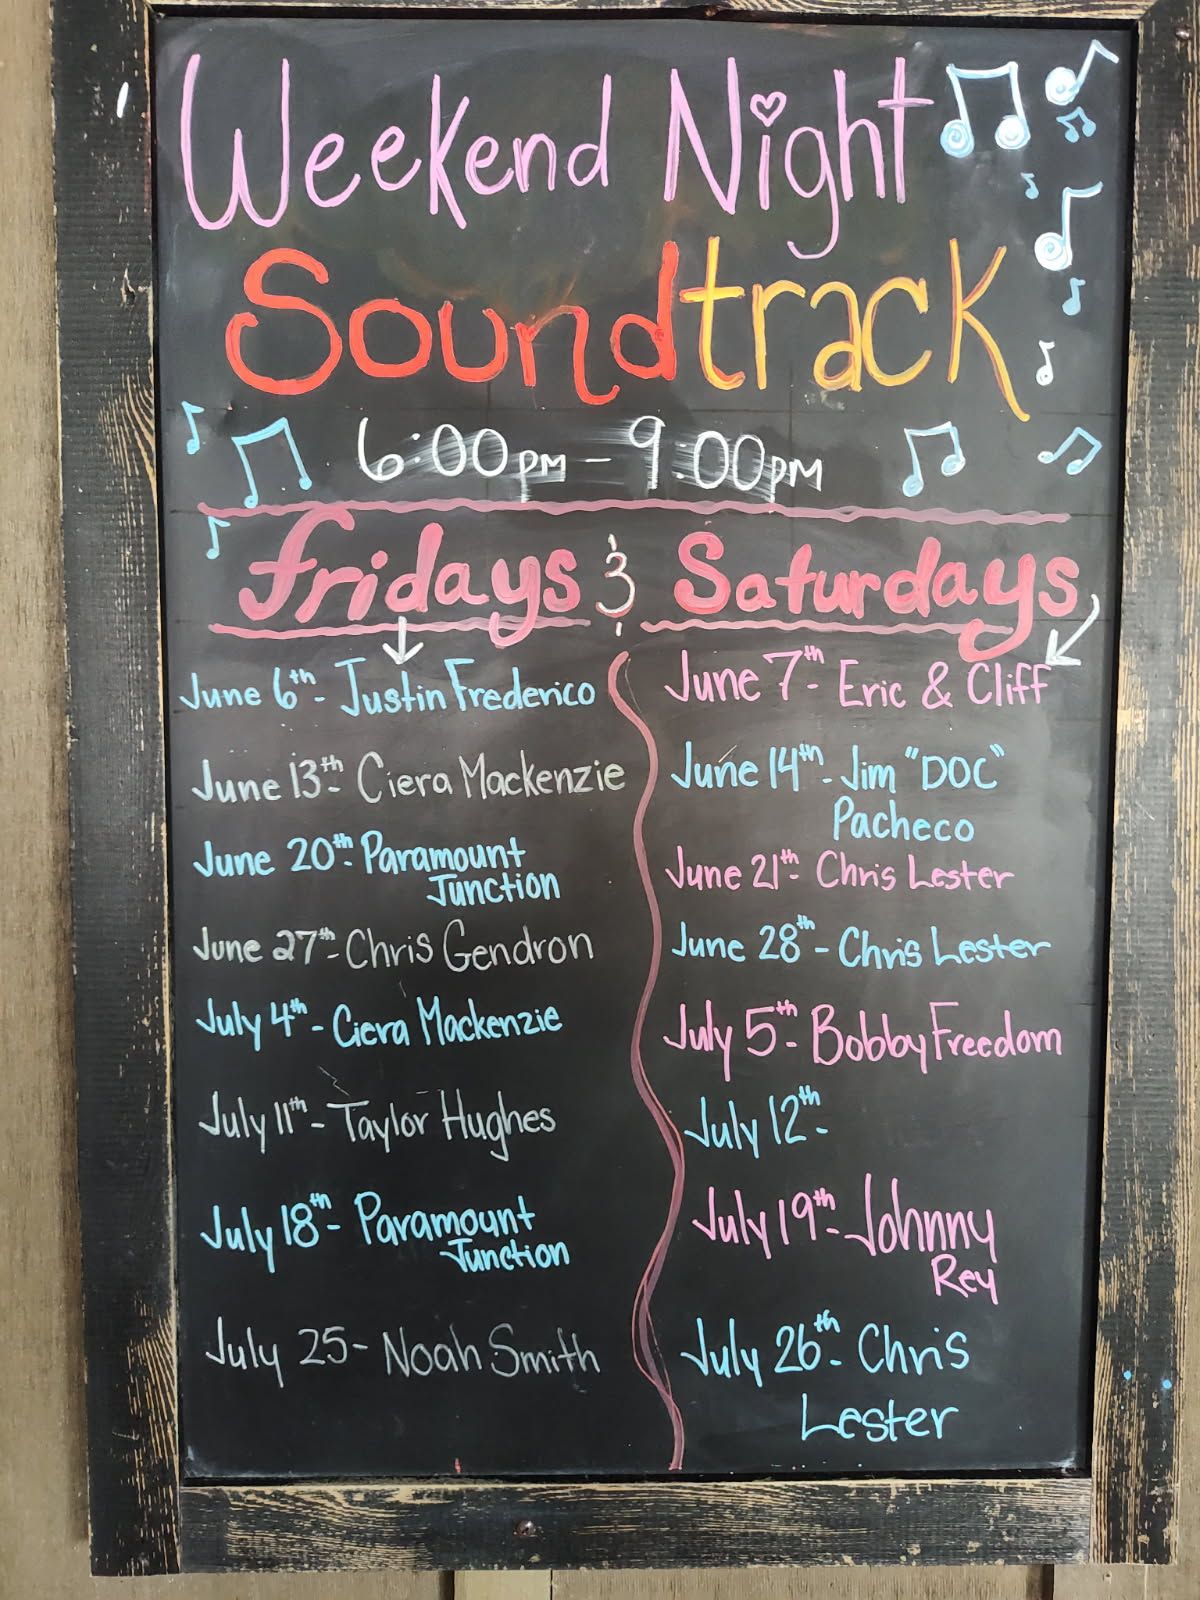 Weekend Night
Soundtrack
6:00PM - 9:00PM
Fridays & Saturdays
June 6th - Justin Frederico
June 13th - Ciera Mackenzie
June 20th - Paramount
Junction
June 27th - Chris Gendron
July 4th - Ciera Mackenzie
July 11th - Taylor Hughes
July 18th - Paramount
Junction
July 25 - Noah Smith
June 7th - Eric & Cliff
June 14th - Jim "DOC"
Pacheco
June 21th - Chris Lester
June 28th - Chris Lester
July 5th - Bobby Freedom
July 12th -
July 19th - Johnny
Rey
July 26th - Chris
Lester